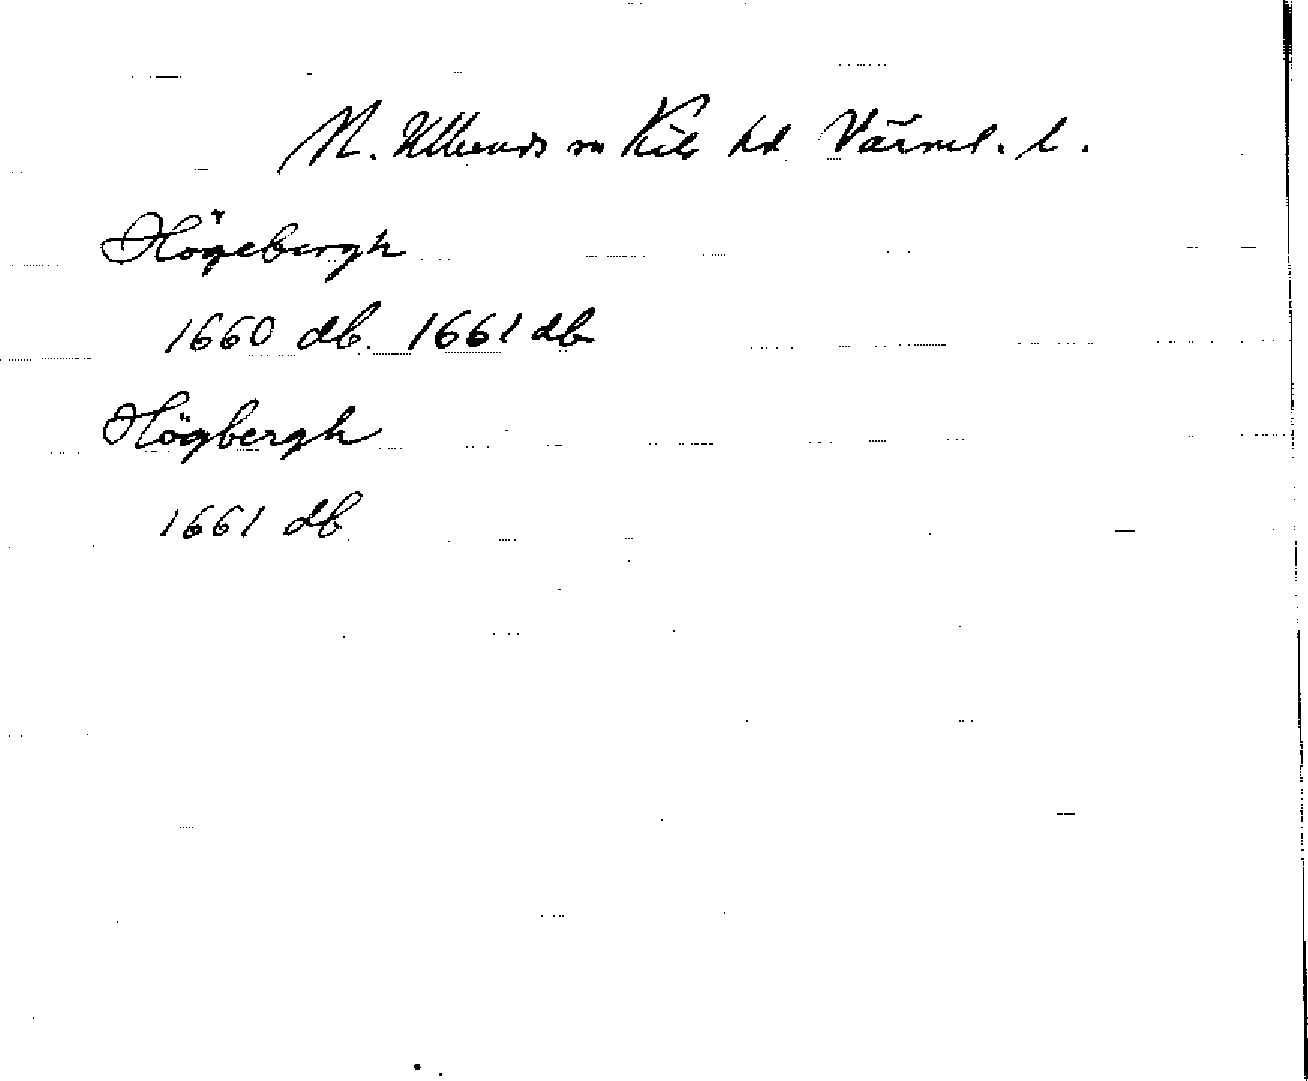 N. Ulleruds sn Kils hd Värml. l.
Högebergh
1660 db. 1661 db
Högbergh
1661 db